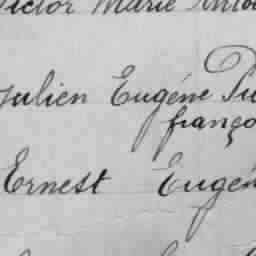 Victor Marie Anto
Julien Eugéne Pi
franço
Ernest Eugén